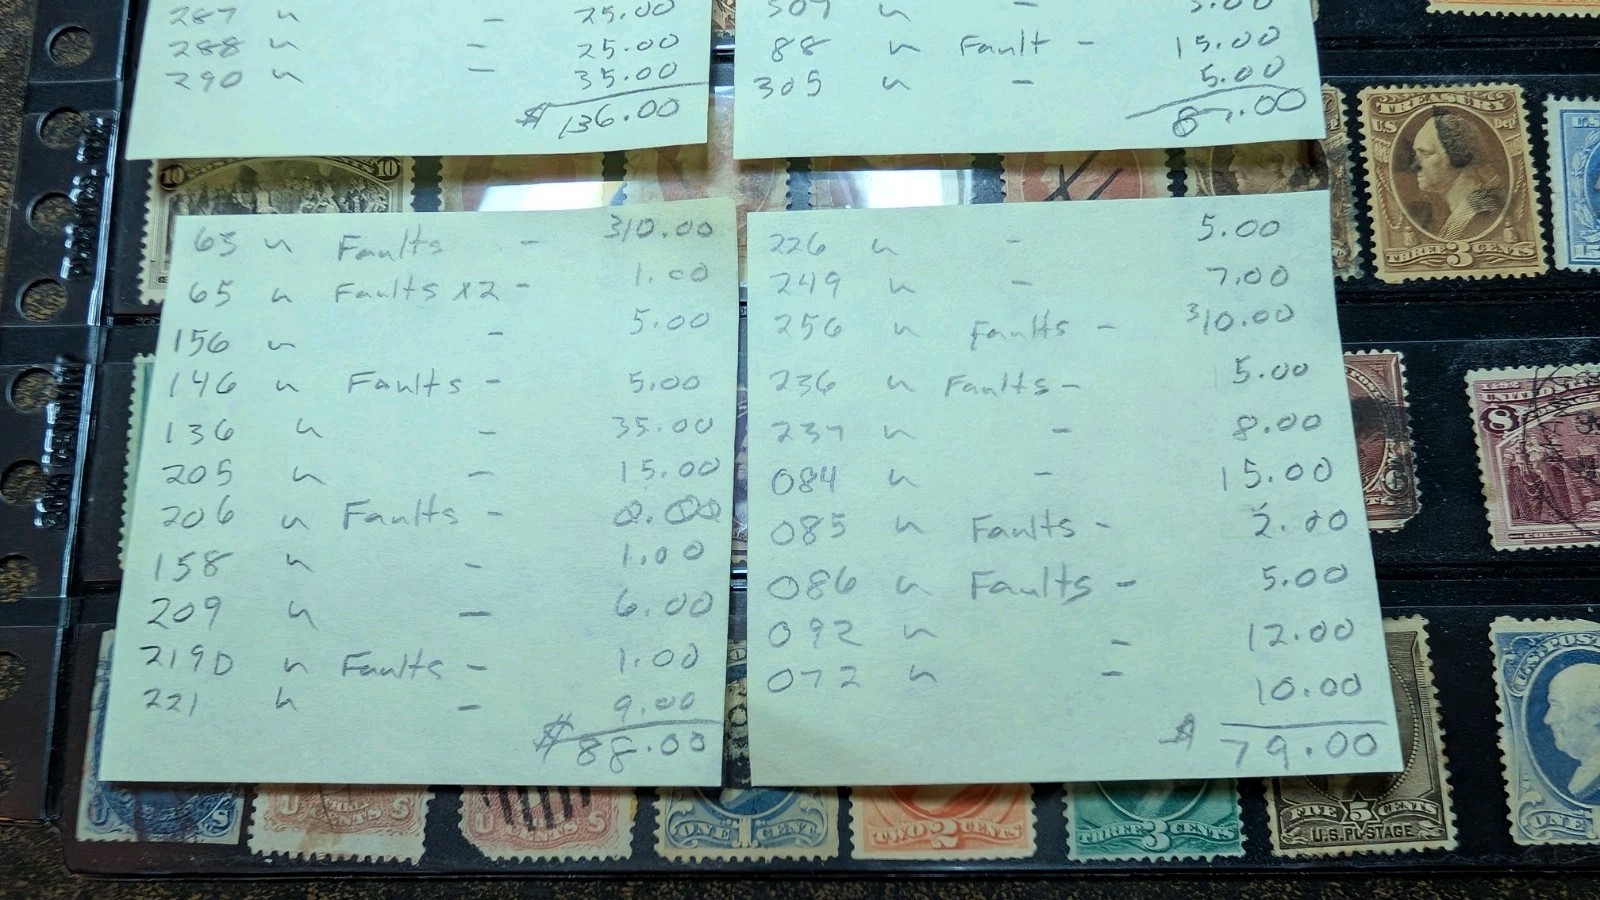 287 u - 25.00
288 u - 25.00
290 u - 35.00
$ 136.00
307 u - 5.00
88 u Fault - 15.00
305 u - 5.00
87.00
63 u Faults - $10.00
65 u Faults x2 - 1.00
156 u - 5.00
146 u Faults - 5.00
136 u - 35.00
205 u - 15.00
206 u Faults - 0.00
158 u - 1.00
209 u - 6.00
219D u Faults - 1.00
221 u - 9.00
$ 88.00
226 u - 5.00
249 u - 7.00
256 u Faults - $10.00
236 u Faults - 5.00
237 u - 8.00
084 u - 15.00
085 u Faults - 2.00
086 u Faults - 5.00
092 u - 12.00
072 u - 10.00
$ 79.00
10 10
TREASURY
U.S. Dep
THREE 3 CENTS
8
U CENTS S
U CENTS S
ONE 1 CENT
TWO 2 CENTS
THREE 3 CENTS
FIVE 5 CENTS
U.S. POSTAGE
ONE